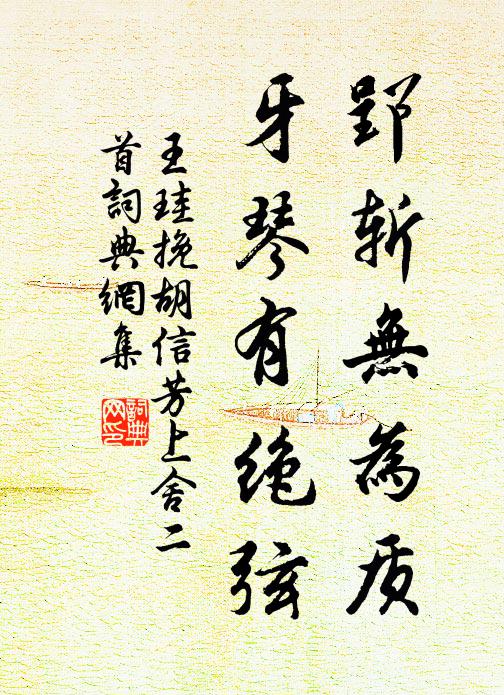 郢斩無為质
牙琴有绝弦
王珪挽胡信芳上舍二
首詞典網集
詞典
网印